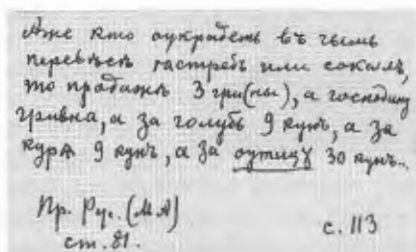 Аже кто оукрадеть въ чьемь
перевѣсѣ ястребъ или соколъ,
то продажѣ 3 гри(ны), а господину
гривна, а за голубь 9 кунъ, а за
курѧ 9 кунъ, а за оутицу 30 кунъ...
Пр. Рус. (М А)
ст. 81.
с. 113